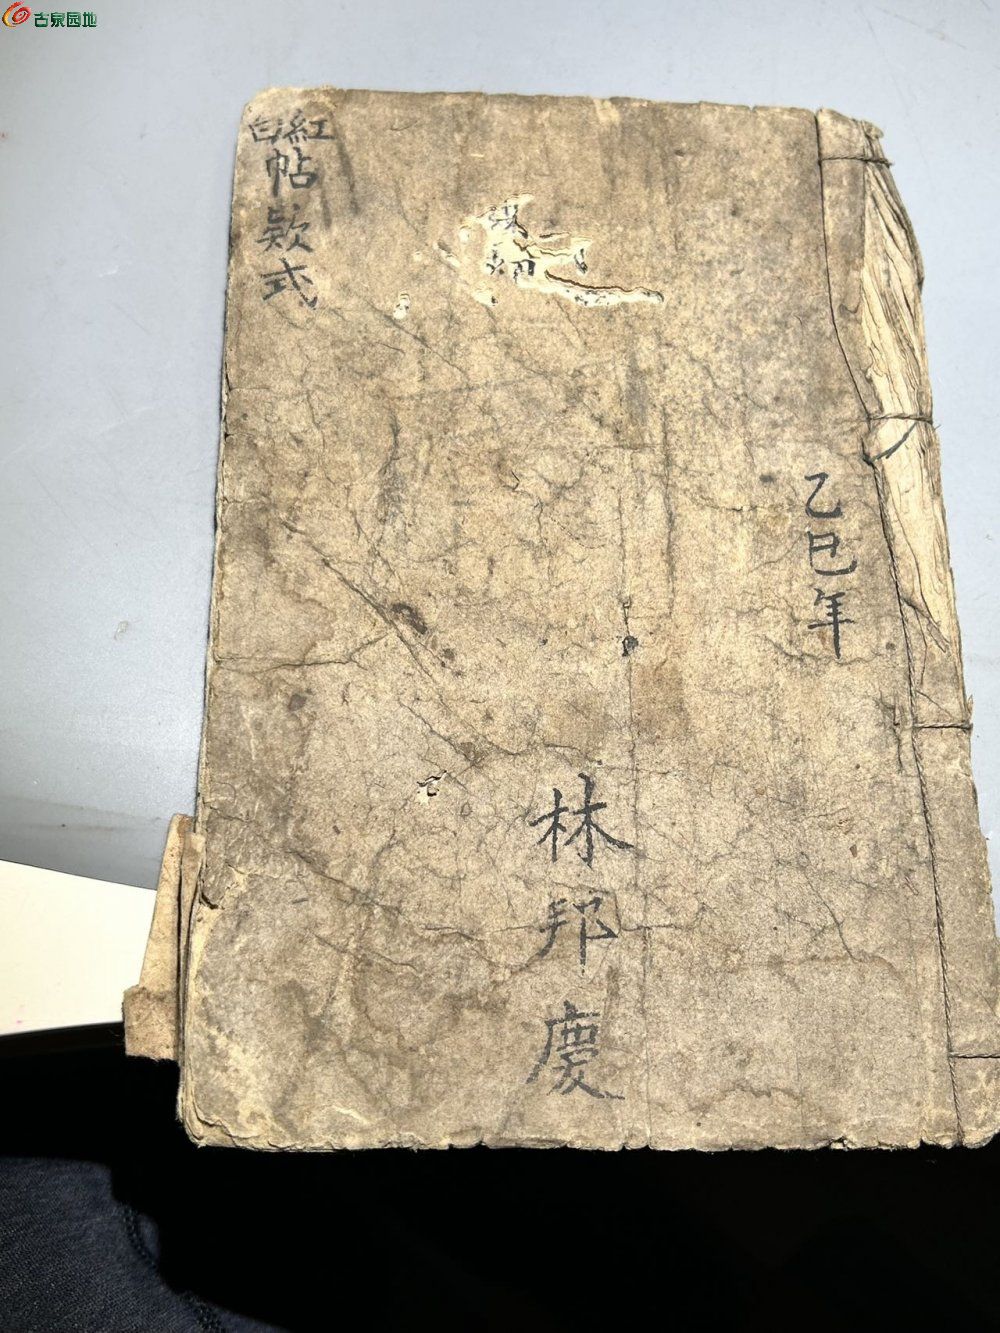 古泉园地
乙巳年
林邦慶
紅白帖款式